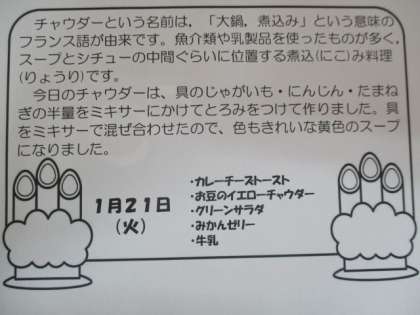 チャウダーという名前は，「大鍋，煮込み」という意味の
フランス語が由来です。魚介類や乳製品を使ったものが多く，
スープとシチューの中間ぐらいに位置する煮込(にこ)み料理
(りょうり)です。
今日のチャウダーは，具のじゃがいも・にんじん・たまね
ぎの半量をミキサーにかけてとろみをつけて作りました。具
をミキサーで混ぜ合わせたので，色もきれいな黄色のスープ
になりました。
1月21日
(火)
・カレーチーズトースト
・お豆のイエローチャウダー
・グリーンサラダ
・みかんゼリー
・牛乳